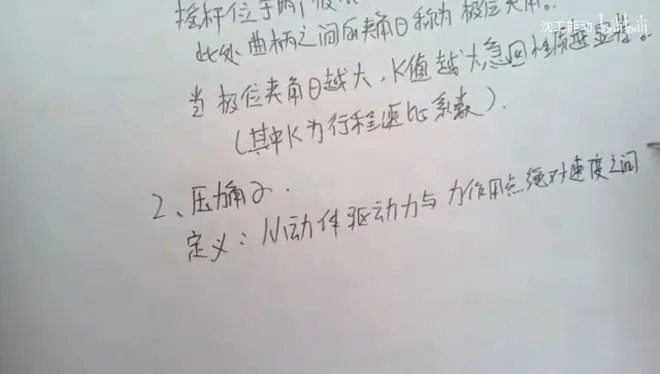 沈工能动 bilibili
摇杆位于两个极限
此处曲柄之间所夹角θ称为极位夹角。
当极位夹角θ越大，K值越大，急回性质越显著。
（其中K为行程速比系数）.
2、压力角α.
定义：从动件驱动力与力作用点绝对速度之间